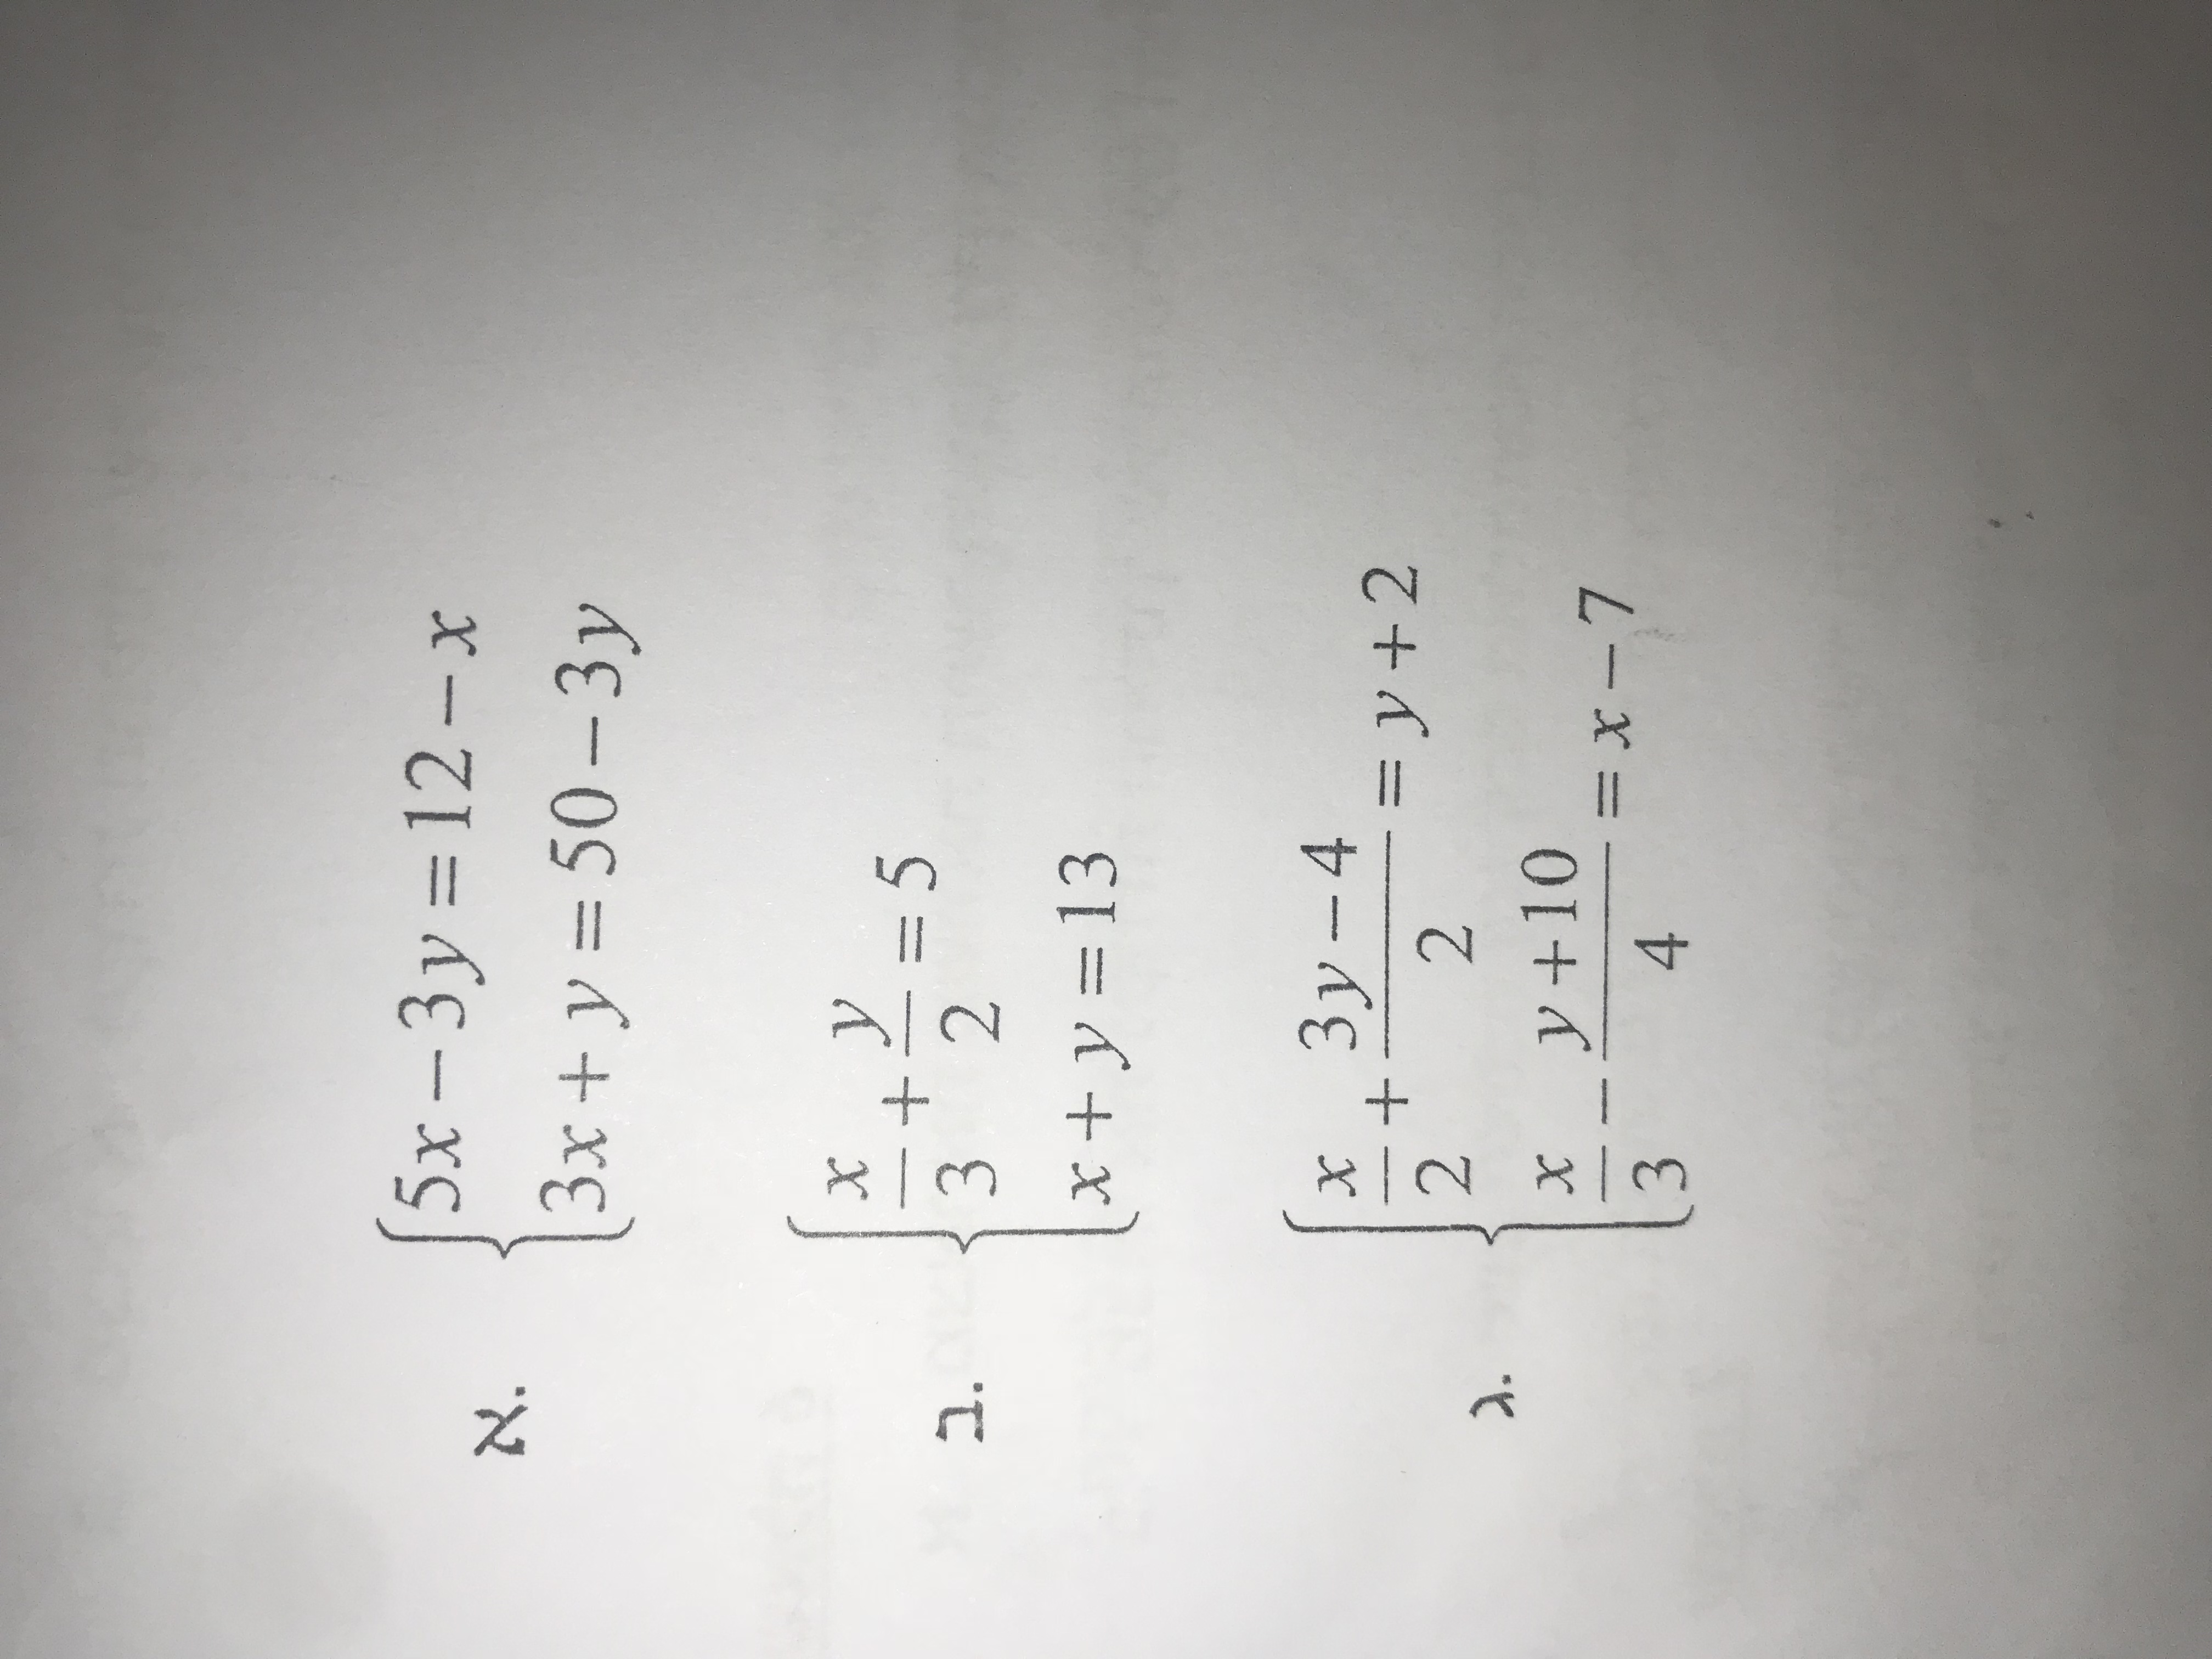 א. { 5x − 3y = 12 − x
3x + y = 50 − 3y
ב. { x/3 + y/2 = 5
x + y = 13
ג. { x/2 + (3y − 4)/2 = y + 2
x/3 − (y + 10)/4 = x − 7